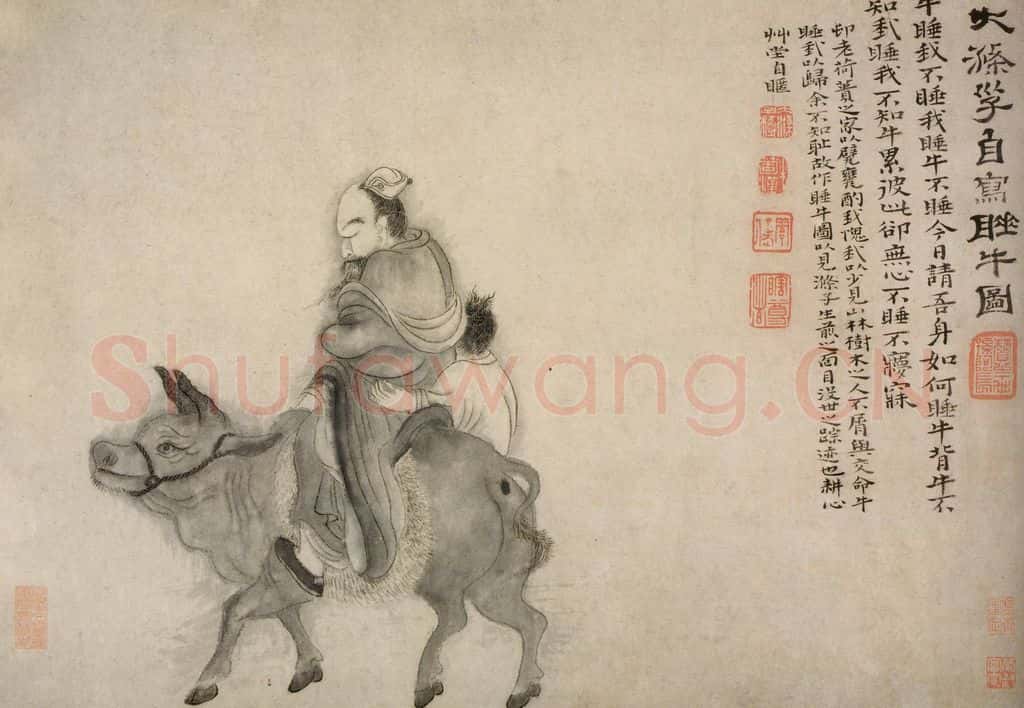 大滌子自寫睡牛圖
牛睡我不睡我睡牛不睡今日請吾身如何睡牛背牛不
知我睡我不知牛累彼此卻無心不睡不㝱寐
邨老荷蕢之家以甓甕酌我愧我以少見山林樹木之人不屑與交命牛
睡我以歸余不知耻故作睡牛圖以見滌子生前之面目沒世之踪迹也耕心
艸堂自暱
Shufawang.CN